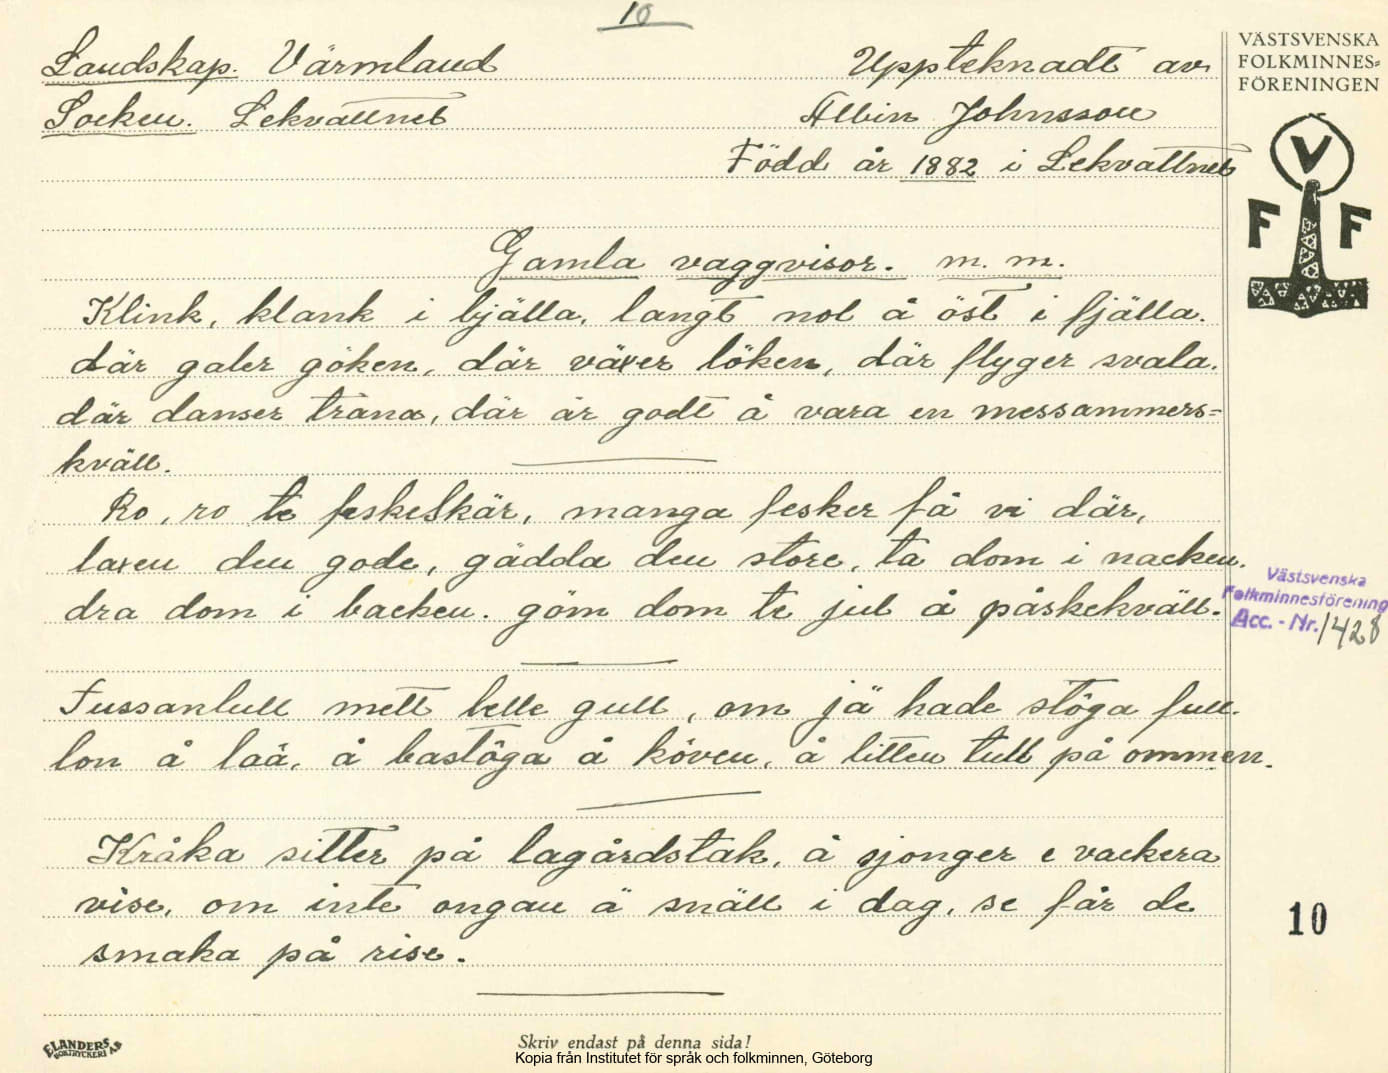 10
Landskap. Värmland
Uppteknadt av
Socken. Lekvattnet
Albin Johnsson
Född år 1882 i Lekvattnet
Gamla vaggvisor. m. m.
Klink, klank i bjälla, langt nol å öst i fjälla.
där galer göken, där växer löken, där flyger svala.
där danser trana, där är godt å vara en messammers-
kväll.
Ro, ro te feskeskär, manga fesker få vi där,
laxen den gode, gädda den store, ta dom i nacken.
dra dom i backen. göm dom te jul å påskekväll.
Fussanlull mett belle gull, om jä hade stöga full.
lon å laä, å bastöga å köven, å litten tull på ommen.
Kråka sitter på lagårdstak, å sjonger e vackera
vise, om inte ongan ä snäll i dag, se får de
smaka på rise.
VÄSTSVENSKA
FOLKMINNES=
FÖRENINGEN
V
F F
Västsvenska
Folkminnesförening
Acc. - Nr. 1428
10
ELANDERS
BOKTRYCKERI AB
Skriv endast på denna sida!
Kopia från Institutet för språk och folkminnen, Göteborg